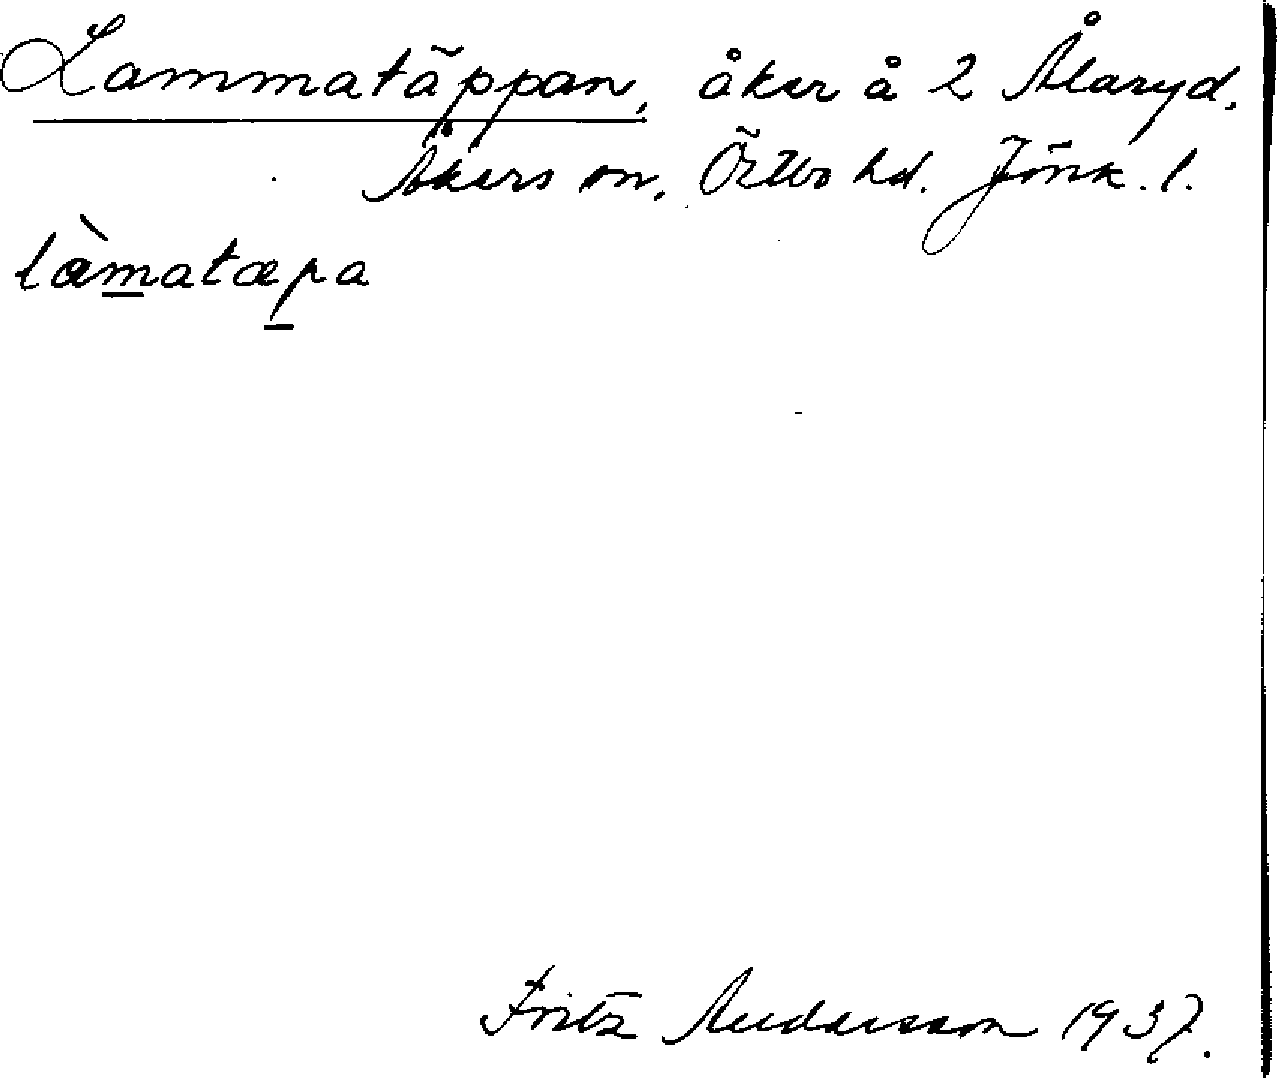 Lammatäppan, åker å 2 Ålaryd.
Åkers sn, Östbo hd. Jönk. l.
læ̀matæpa
Fritz Andersson 1937.